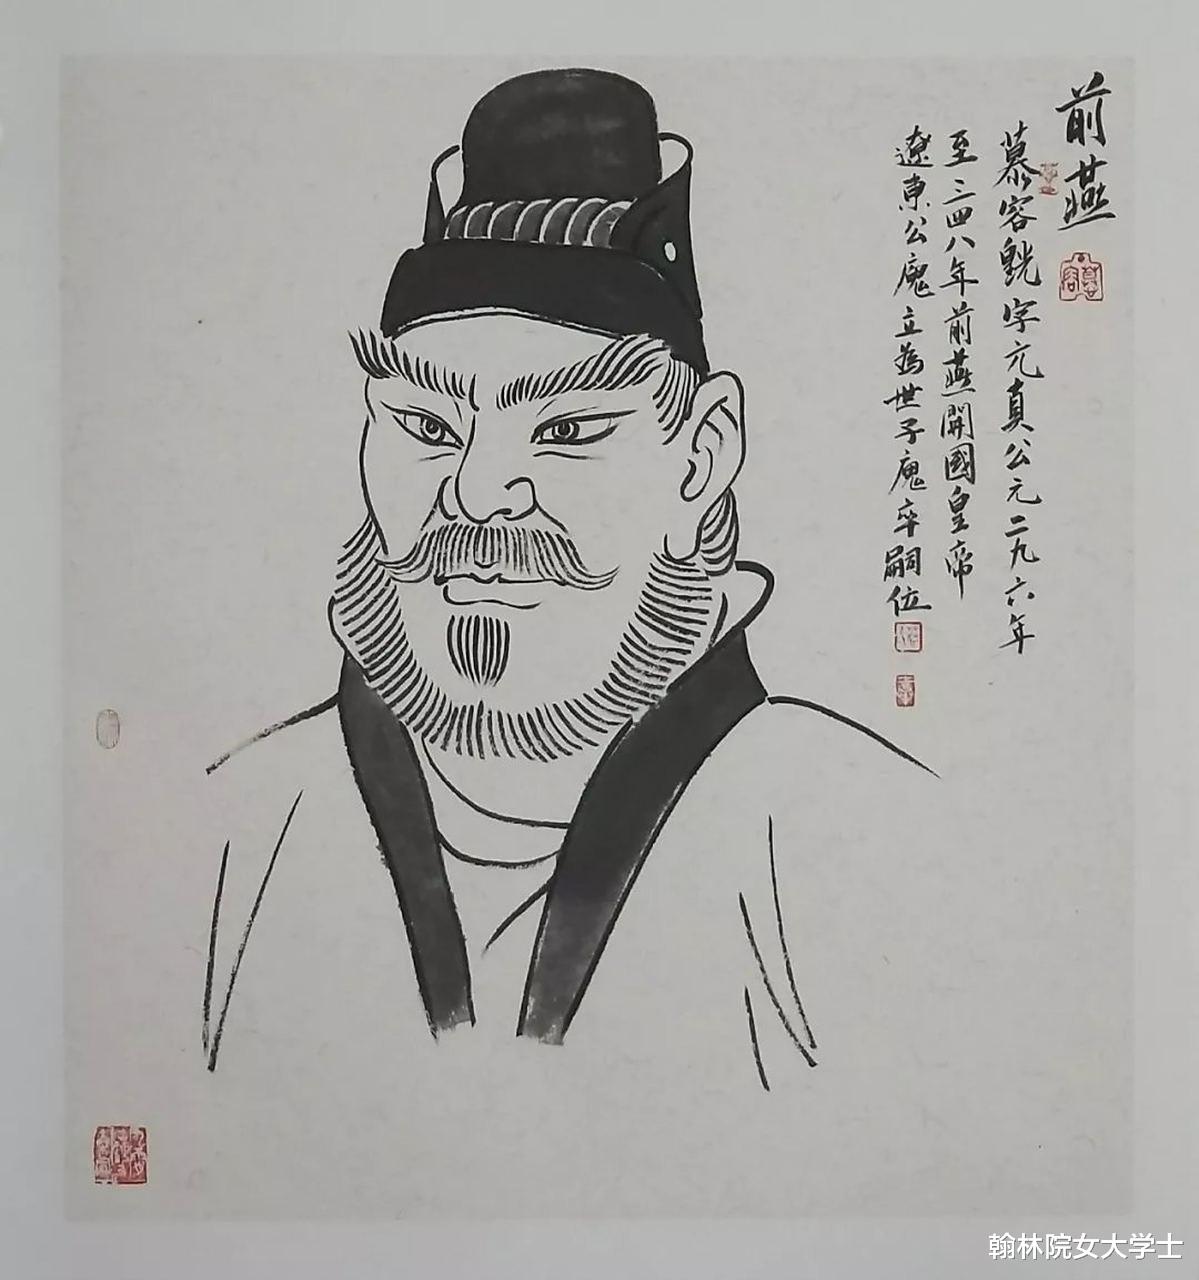 前燕
慕容皝字元真公元二九六年
至三四八年前燕開國皇帝
遼東公廆立為世子廆卒嗣位
慕容
翰林院女大学士